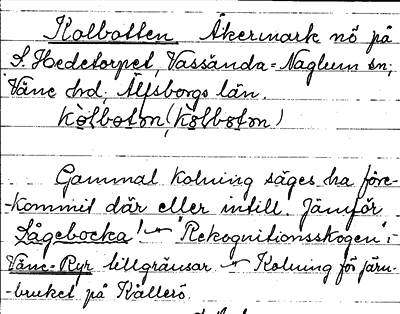 Kolbotten Åkermark nö på
S. Hedetorpet, Vassända-Naglum sn;
Väne hd, Älfsborgs län.
Kolboton (Kolboton)
Gammal kolning säges ha före-
-kommit där eller intill. Jämför
Lågebocka! – "Rekognitionsskogen" i
Väne-Ryr tillgränsar – Kolning för järn-
-bruket på Kållerö.